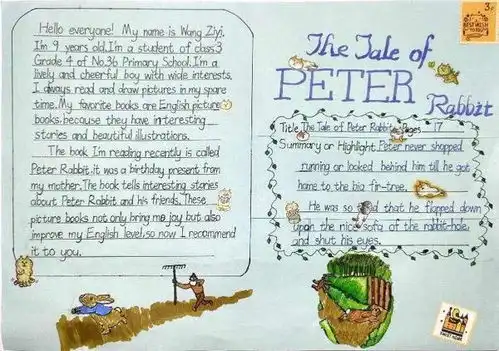 Hello everyone! My name is Wang Ziyi.
I'm 9 years old.I'm a student of class3
Grade 4 of No.36 Primary School.I'm a
lively and cheerful boy with wide interests.
I always read and draw pictures in my spare
time. My favorite books are English picture
books.because they have interesting
stories and beautiful illustrations.
The book I'm reading recently is called
Peter Rabbit.it was a birthday present from
my mother.The book tells interesting stories
about Peter Rabbit and his friends.These
picture books not only bring me joy but also
improve my English level.so now I recommend
it to you.
3
BEST WISH
TO YOU
The Tale of
PETER
Rabbit
Title The Tale of Peter Rabbit Pages 17
Summary or Highlight Peter never shopped
running or looked behind him till he got
home to the big fir-tree.
He was so that he flopped down
upon the nice sofa of the rabbit-hole
and shut his eyes.